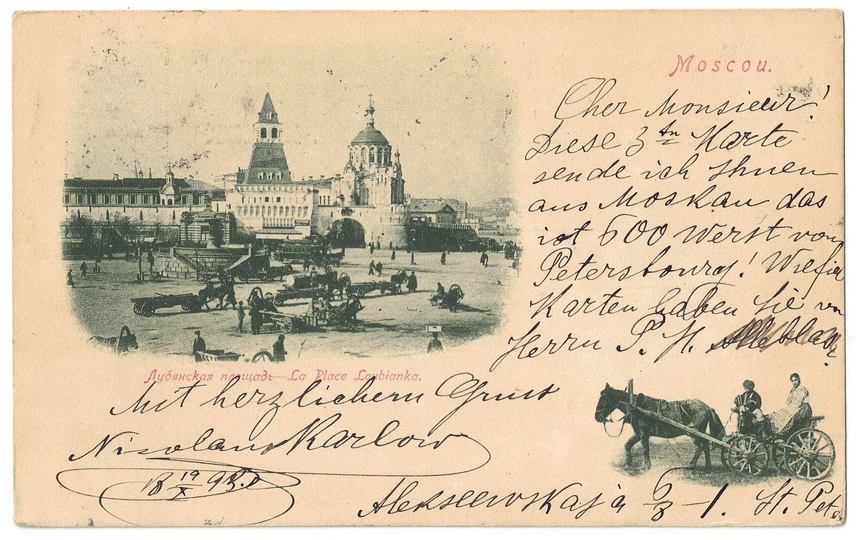 Moscou.
Cher Monsieur!
Diese 3te Karte
sende ich Ihnen
aus Moskau das
ist 600 Werst von
Petersbourg! Wiefiel
Karten haben Sie von
Herrn P. H.
Лубянская площадь—La Place Loubianka.
Mit herzlichem Gruss
Nicolaus Karlow
18 19/X 98.
Alekseewskaja 6/8-1. St. Pet